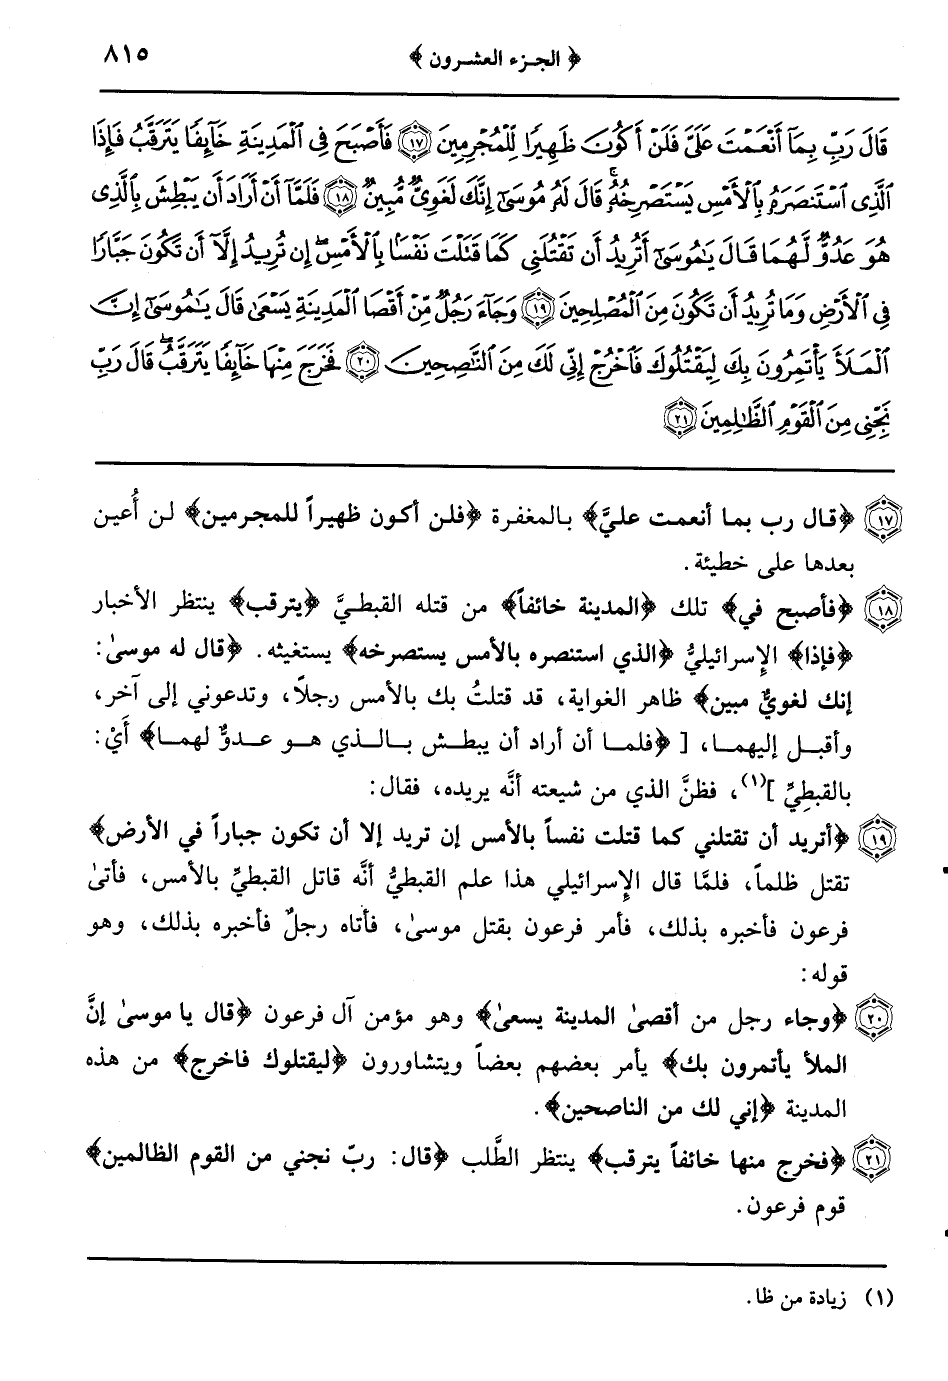 ﴿ الجزء العشرون ﴾ ٨١٥
قَالَ رَبِّ بِمَآ أَنْعَمْتَ عَلَىَّ فَلَنْ أَكُونَ ظَهِيرًا لِّلْمُجْرِمِينَ ١٧ فَأَصْبَحَ فِى ٱلْمَدِينَةِ خَآئِفًا يَتَرَقَّبُ فَإِذَا
ٱلَّذِى ٱسْتَنصَرَهُۥ بِٱلْأَمْسِ يَسْتَصْرِخُهُۥ قَالَ لَهُۥ مُوسَىٰٓ إِنَّكَ لَغَوِىٌّ مُّبِينٌ ١٨ فَلَمَّآ أَنْ أَرَادَ أَن يَبْطِشَ بِٱلَّذِى
هُوَ عَدُوٌّ لَّهُمَا قَالَ يَٰمُوسَىٰٓ أَتُرِيدُ أَن تَقْتُلَنِى كَمَا قَتَلْتَ نَفْسًۢا بِٱلْأَمْسِ إِن تُرِيدُ إِلَّآ أَن تَكُونَ جَبَّارًا
فِى ٱلْأَرْضِ وَمَا تُرِيدُ أَن تَكُونَ مِنَ ٱلْمُصْلِحِينَ ١٩ وَجَآءَ رَجُلٌ مِّنْ أَقْصَا ٱلْمَدِينَةِ يَسْعَىٰ قَالَ يَٰمُوسَىٰٓ إِنَّ
ٱلْمَلَأَ يَأْتَمِرُونَ بِكَ لِيَقْتُلُوكَ فَٱخْرُجْ إِنِّى لَكَ مِنَ ٱلنَّٰصِحِينَ ٢٠ فَخَرَجَ مِنْهَا خَآئِفًا يَتَرَقَّبُ قَالَ رَبِّ
نَجِّنِى مِنَ ٱلْقَوْمِ ٱلظَّٰلِمِينَ ٢١
١٧ ﴿قال رب بما أنعمت عليَّ﴾ بالمغفرة ﴿فلن أكون ظهيراً للمجرمين﴾ لن أُعين
بعدها على خطيئة.
١٨ ﴿فأصبح في﴾ تلك ﴿المدينة خائفاً﴾ من قتله القبطيَّ ﴿يترقب﴾ ينتظر الأخبار
﴿فإذا﴾ الإِسرائيليُّ ﴿الذي استنصره بالأمس يستصرخه﴾ يستغيثه. ﴿قال له موسىٰ:
إنك لغويٌّ مبين﴾ ظاهر الغواية، قد قتلتُ بك بالأمس رجلاً، وتدعوني إلى آخر،
وأقبل إليهما، [ ﴿فلما أن أراد أن يبطش بالذي هو عدوٌّ لهما﴾ أَيْ:
بالقبطِيِّ ](١)، فظنَّ الذي من شيعته أنَّه يريده، فقال:
١٩ ﴿أتريد أن تقتلني كما قتلت نفساً بالأمس إن تريد إلا أن تكون جباراً في الأرض﴾
تقتل ظلماً، فلمَّا قال الإِسرائيلي هذا علم القبطيُّ أنَّه قاتل القبطيِّ بالأمس، فأتىٰ
فرعون فأخبره بذلك، فأمر فرعون بقتل موسىٰ، فأتاه رجلٌ فأخبره بذلك، وهو
قوله:
٢٠ ﴿وجاء رجل من أقصىٰ المدينة يسعىٰ﴾ وهو مؤمن آل فرعون ﴿قال يا موسىٰ إنَّ
الملأ يأتمرون بك﴾ يأمر بعضهم بعضاً ويتشاورون ﴿ليقتلوك فاخرج﴾ من هذه
المدينة ﴿إني لك من الناصحين﴾.
٢١ ﴿فخرج منها خائفاً يترقب﴾ ينتظر الطَّلب ﴿قال: ربّ نجني من القوم الظالمين﴾
قوم فرعون.
(١) زيادة من ظا.